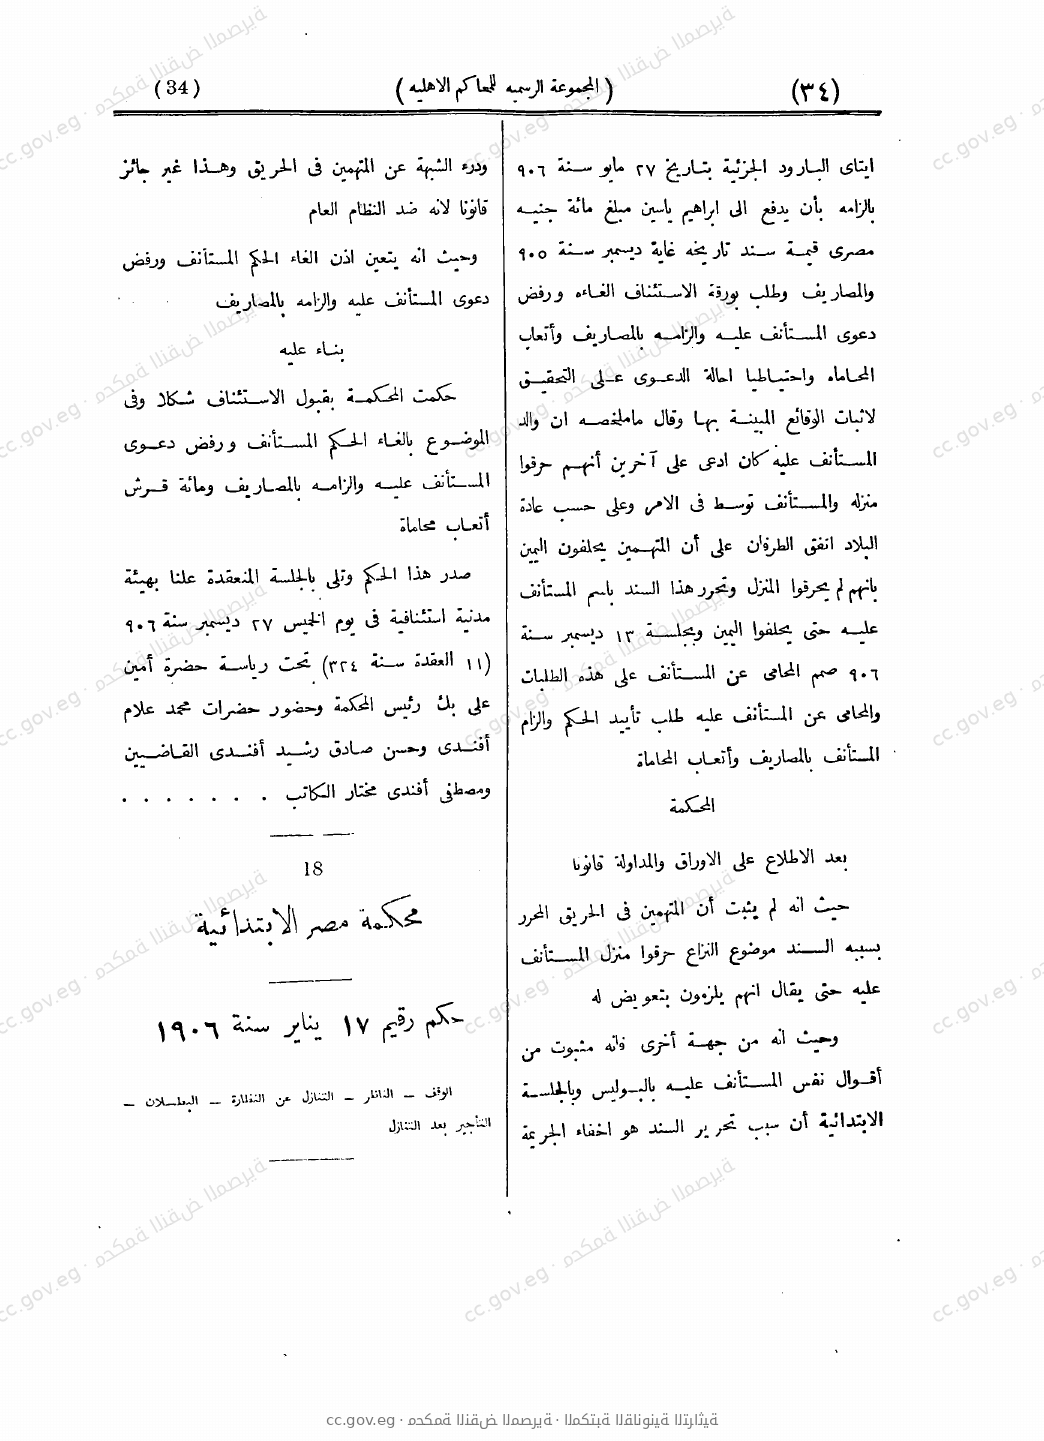 (٣٤)
(المجموعة الرسميه للمحاكم الاهليه)
(34)
ايتاى البارود الجزئية بتاريخ ٢٧ مايو سنة ٩٠٦
بالزامه بأن يدفع الى ابراهيم ياسين مبلغ مائة جنيه
مصرى قيمة سند تاريخه غاية ديسمبر سنة ٩٠٥
والمصاريف وطلب بورقة الاستئناف الغاءه ورفض
دعوى المستأنف عليه والزامه بالمصاريف وأتعاب
المحاماه واحتياطيا احالة الدعوى على التحقيق
لاثبات الوقائع المبينة بها وقال ماملخصه ان والد
المستأنف عليه كان ادعى على آخرين أنهم حرقوا
منزله والمستأنف توسط فى الامر وعلى حسب عادة
البلاد اتفق الطرفان على أن المتهمين يحلفون اليمين
بانهم لم يحرقوا المنزل وتحرر هذا السند باسم المستأنف
عليه حتى يحلفوا اليمين وبجلسة ١٣ ديسمبر سنة
٩٠٦ صمم المحامى عن المستأنف على هذه الطلبات
والمحامى عن المستأنف عليه طلب تأييد الحكم والزام
المستأنف بالمصاريف وأتعاب المحاماة
المحكمة
بعد الاطلاع على الاوراق والمداولة قانونا
حيث انه لم يثبت أن المتهمين فى الحريق المحرر
بسببه السند موضوع النزاع حرقوا منزل المستأنف
عليه حتى يقال انهم يلزمون بتعويض له
وحيث انه من جهة أخرى فانه مثبوت من
أقوال نفس المستأنف عليه بالبوليس وبالجلسة
الابتدائية أن سبب تحرير السند هو اخفاء الجريمة
ودرء الشبهة عن المتهمين فى الحريق وهذا غير جائز
قانونا لانه ضد النظام العام
وحيث انه يتعين اذن الغاء الحكم المستأنف ورفض
دعوى المستأنف عليه والزامه بالمصاريف
بناء عليه
حكمت المحكمة بقبول الاستئناف شكلا وفى
الموضوع بالغاء الحكم المستأنف ورفض دعوى
المستأنف عليه والزامه بالمصاريف ومائة قرش
أتعاب محاماة
صدر هذا الحكم وتلى بالجلسة المنعقدة علنا بهيئة
مدنية استئنافية فى يوم الخميس ٢٧ ديسمبر سنة ٩٠٦
(١١ القعدة سنة ٣٢٤) تحت رياسة حضرة أمين
على بك رئيس المحكمة وحضور حضرات محمد علام
أفندى وحسن صادق رشيد أفندى القاضيين
ومصطفى أفندى مختار الكاتب . . . . . . .
18
محكمة مصر الابتدائية
حكم رقيم ١٧ يناير سنة ١٩٠٦
الوقف – الناظر – التنازل عن النظارة – البطلان –
التأجير بعد التنازل
cc.gov.eg · محكمة النقض المصرية · المكتبة القانونية التراثية